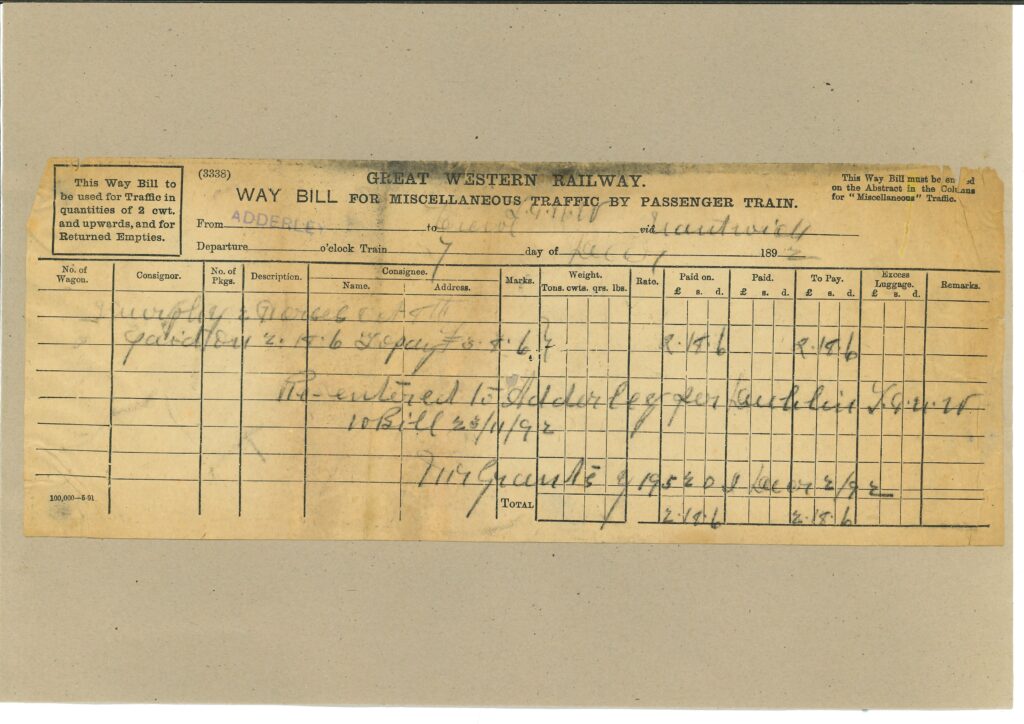 This Way Bill to
be used for Traffic in
quantities of 2 cwt.
and upwards, and for
Returned Empties.
(3338)
GREAT WESTERN RAILWAY.
WAY BILL FOR MISCELLANEOUS TRAFFIC BY PASSENGER TRAIN.
This Way Bill must be en ed
on the Abstract in the Columns
for "Miscellaneous" Traffic.
From ADDERLEY to via Nantwich
Departure o'clock Train 7 day of Decr 1892
No. of Wagon. Consignor. No. of Pkgs. Description. Consignee. Name. Address. Marks. Weight. Tons. cwts. qrs. lbs. Rate. Paid on. £ s. d. Paid. £ s. d. To Pay. £ s. d. Excess Luggage. £ s. d. Remarks.
Murphy 2 Horses
paid on 2.18.6 To pay 8.6 2.18.6 2.18.6
Re-entered to Adderley per Dublin
to Bill 23/11/92
Mr Grant's 19520 Decr 2/92
100,000—5-91
TOTAL 2.18.6 2.18.6